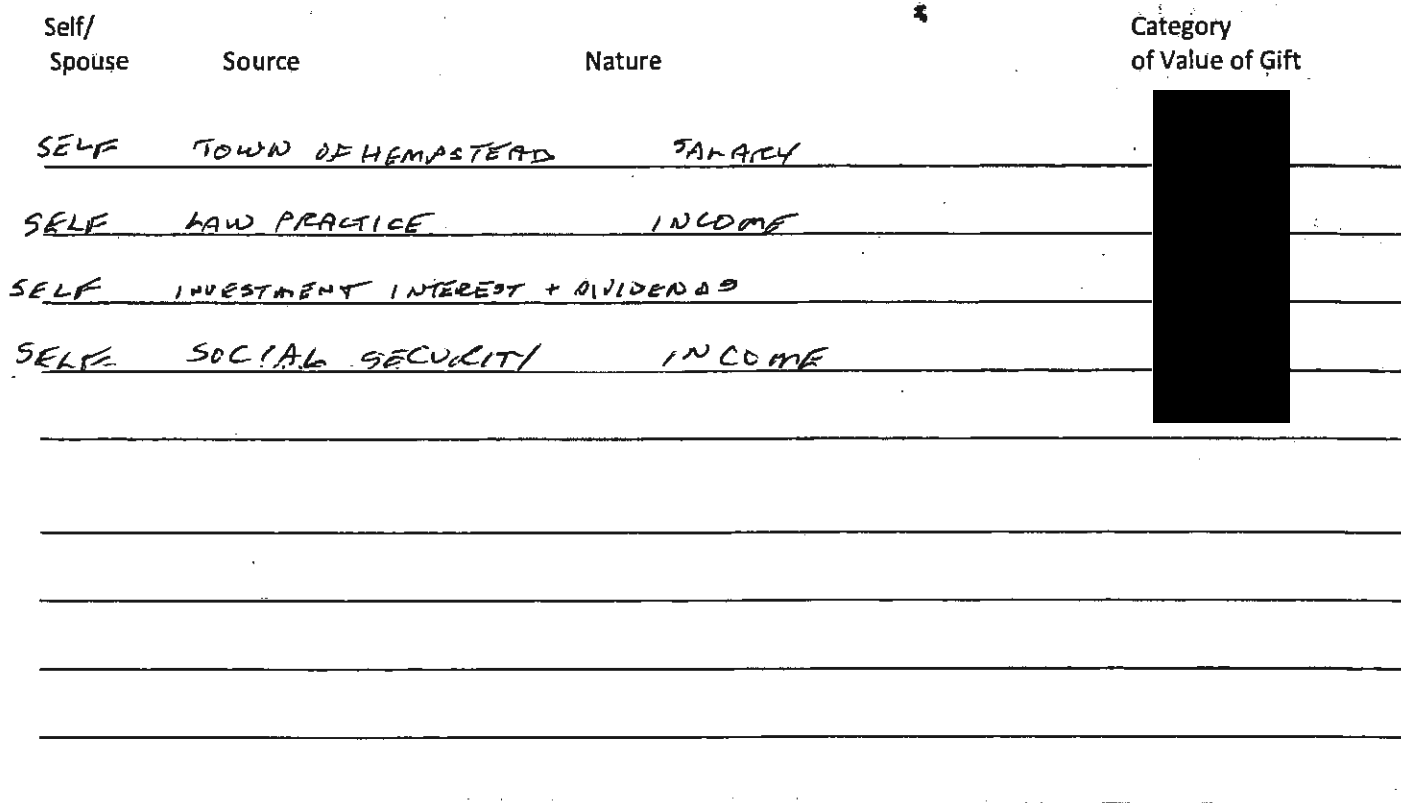 Self/ Category
Spouse Source Nature of Value of Gift
SELF TOWN OF HEMPSTEAD SALARY
SELF LAW PRACTICE INCOME
SELF INVESTMENT INTEREST + DIVIDENDS
SELF SOCIAL SECURITY INCOME